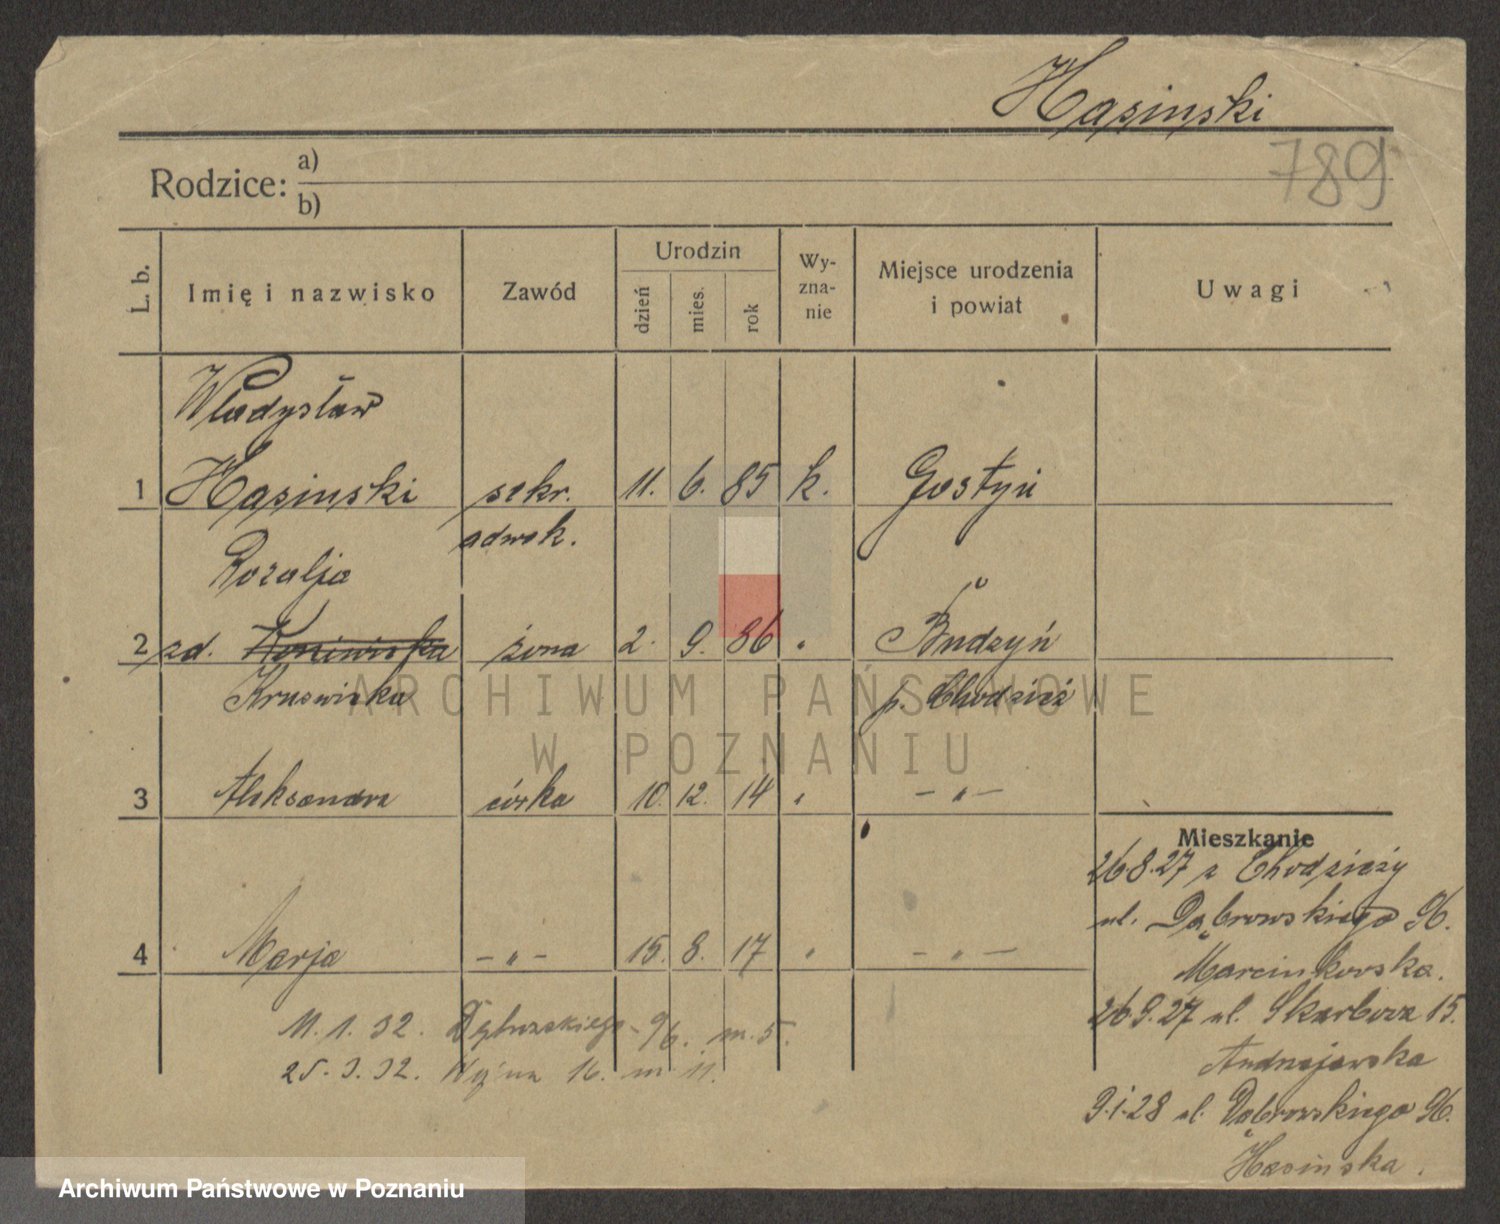 Hasinski
789
Rodzice: a)
b)
L. b. Imię i nazwisko Zawód Urodzin dzień mies. rok Wy-zna-nie Miejsce urodzenia i powiat Uwagi
Władysław
1 Hasinski sekr. 11. 6. 85 k. Gostyń
adwok.
Rozalja
2 zd. żona 2. 9. 86 " Budzyń
p. Chodzież
3 Aleksandra córka 10. 12. 14 " — " —
4 Marja — " — 15. 8. 17 " — " —
11. 1. 32. Dąbrowskiego 96. m. 5.
25. 3. 32. 16. m 11.
Mieszkanie
26.8.27 z Chodzieży
ul. Dąbrowskiego 96.
Marcinkowska.
26.9.27 ul. Skarbowa 15.
Andrzejewska
9.1.28 ul. Dąbrowskiego 96.
Hasinska.
ARCHIWUM PAŃSTWOWE
W POZNANIU
Archiwum Państwowe w Poznaniu